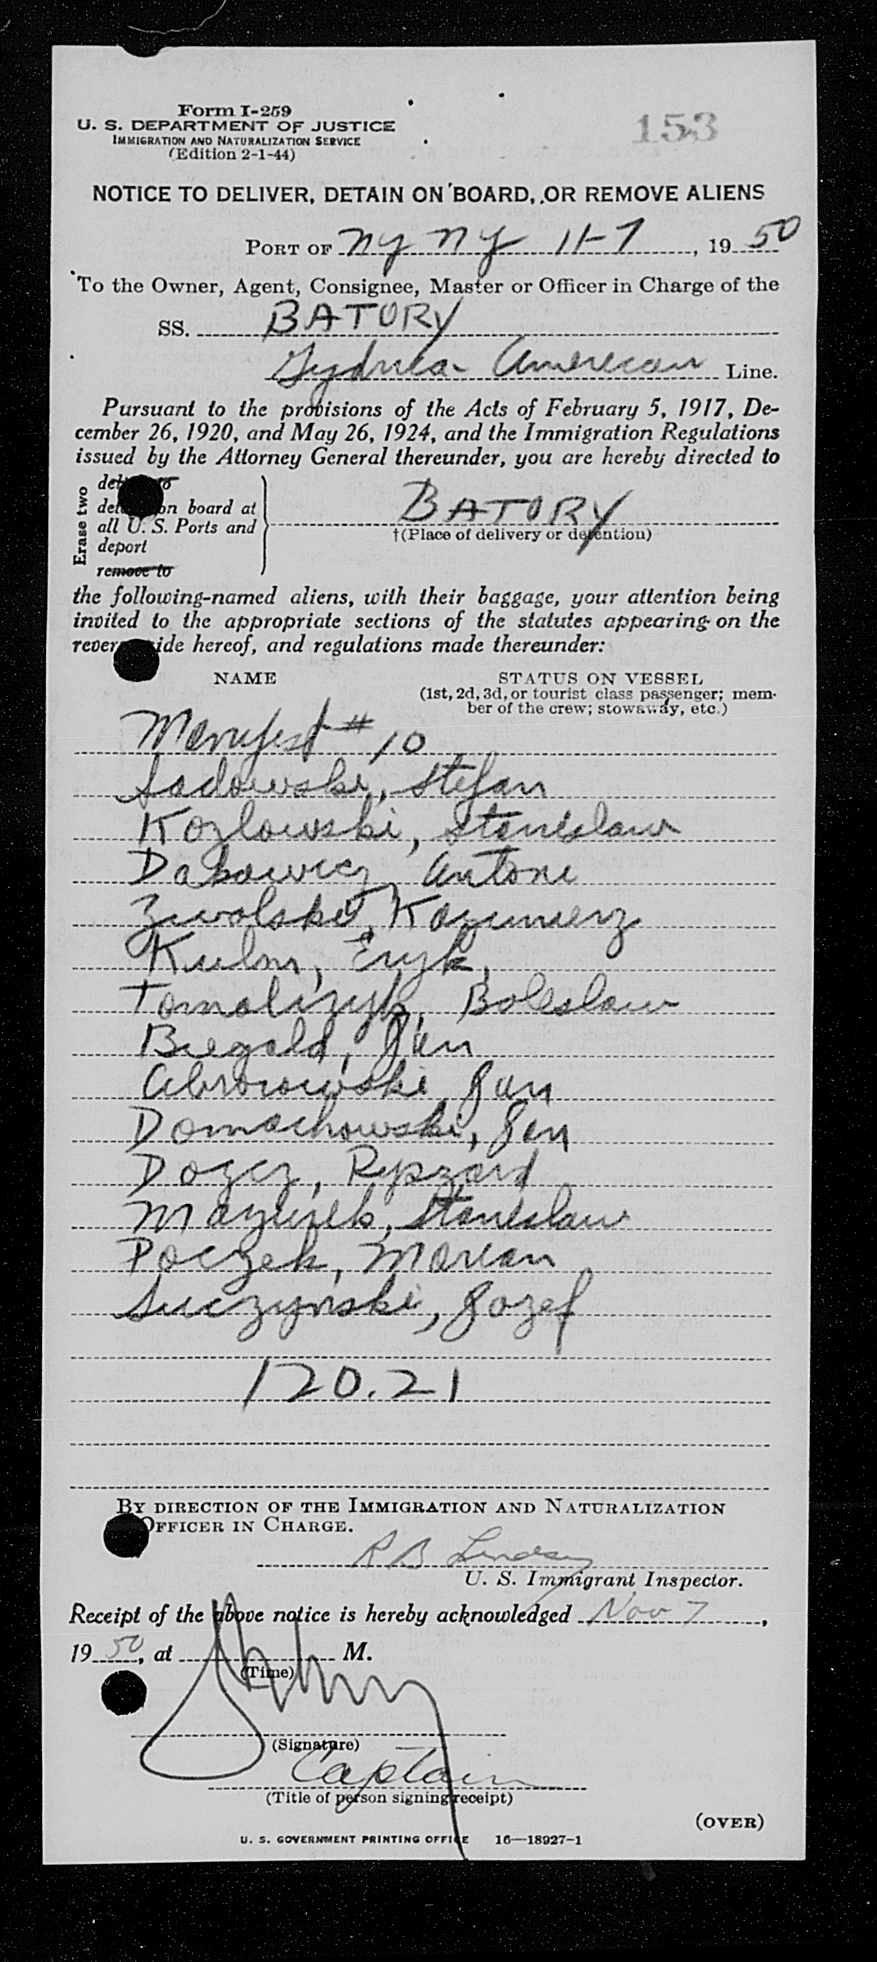 Form I-259
U. S. DEPARTMENT OF JUSTICE
IMMIGRATION AND NATURALIZATION SERVICE
(Edition 2-1-44)
153
NOTICE TO DELIVER, DETAIN ON BOARD, OR REMOVE ALIENS
PORT OF NY NY 11-7, 1950
To the Owner, Agent, Consignee, Master or Officer in Charge of the
SS. BATORY
Gydnia American Line.
Pursuant to the provisions of the Acts of February 5, 1917, De-
cember 26, 1920, and May 26, 1924, and the Immigration Regulations
issued by the Attorney General thereunder, you are hereby directed to
Erase two
on board at
all U. S. Ports and
deport
remove to
BATORY
†(Place of delivery or detention)
the following-named aliens, with their baggage, your attention being
invited to the appropriate sections of the statutes appearing on the
reverse side hereof, and regulations made thereunder:
NAME STATUS ON VESSEL
(1st, 2d, 3d, or tourist class passenger; mem-
ber of the crew; stowaway, etc.)
Manifest # 10
Sadowski, Stefan
Kozlowski, Stanislaw
Antoni
Zwolski, Kazimierz
Kulm, Eryk,
Boleslaw
Biegald, Jan
Jan
Domachowski, Jan
Ryszard
Mazurek, Stanislaw
Poczek, Marian
Suczynski, Jozef
120.21
BY DIRECTION OF THE IMMIGRATION AND NATURALIZATION
OFFICER IN CHARGE.
R B Lindsay
U. S. Immigrant Inspector.
Receipt of the above notice is hereby acknowledged Nov 7,
1950, at M.
(Time)
(Signature)
Captain
(Title of person signing receipt)
(OVER)
U. S. GOVERNMENT PRINTING OFFICE 16—18927-1